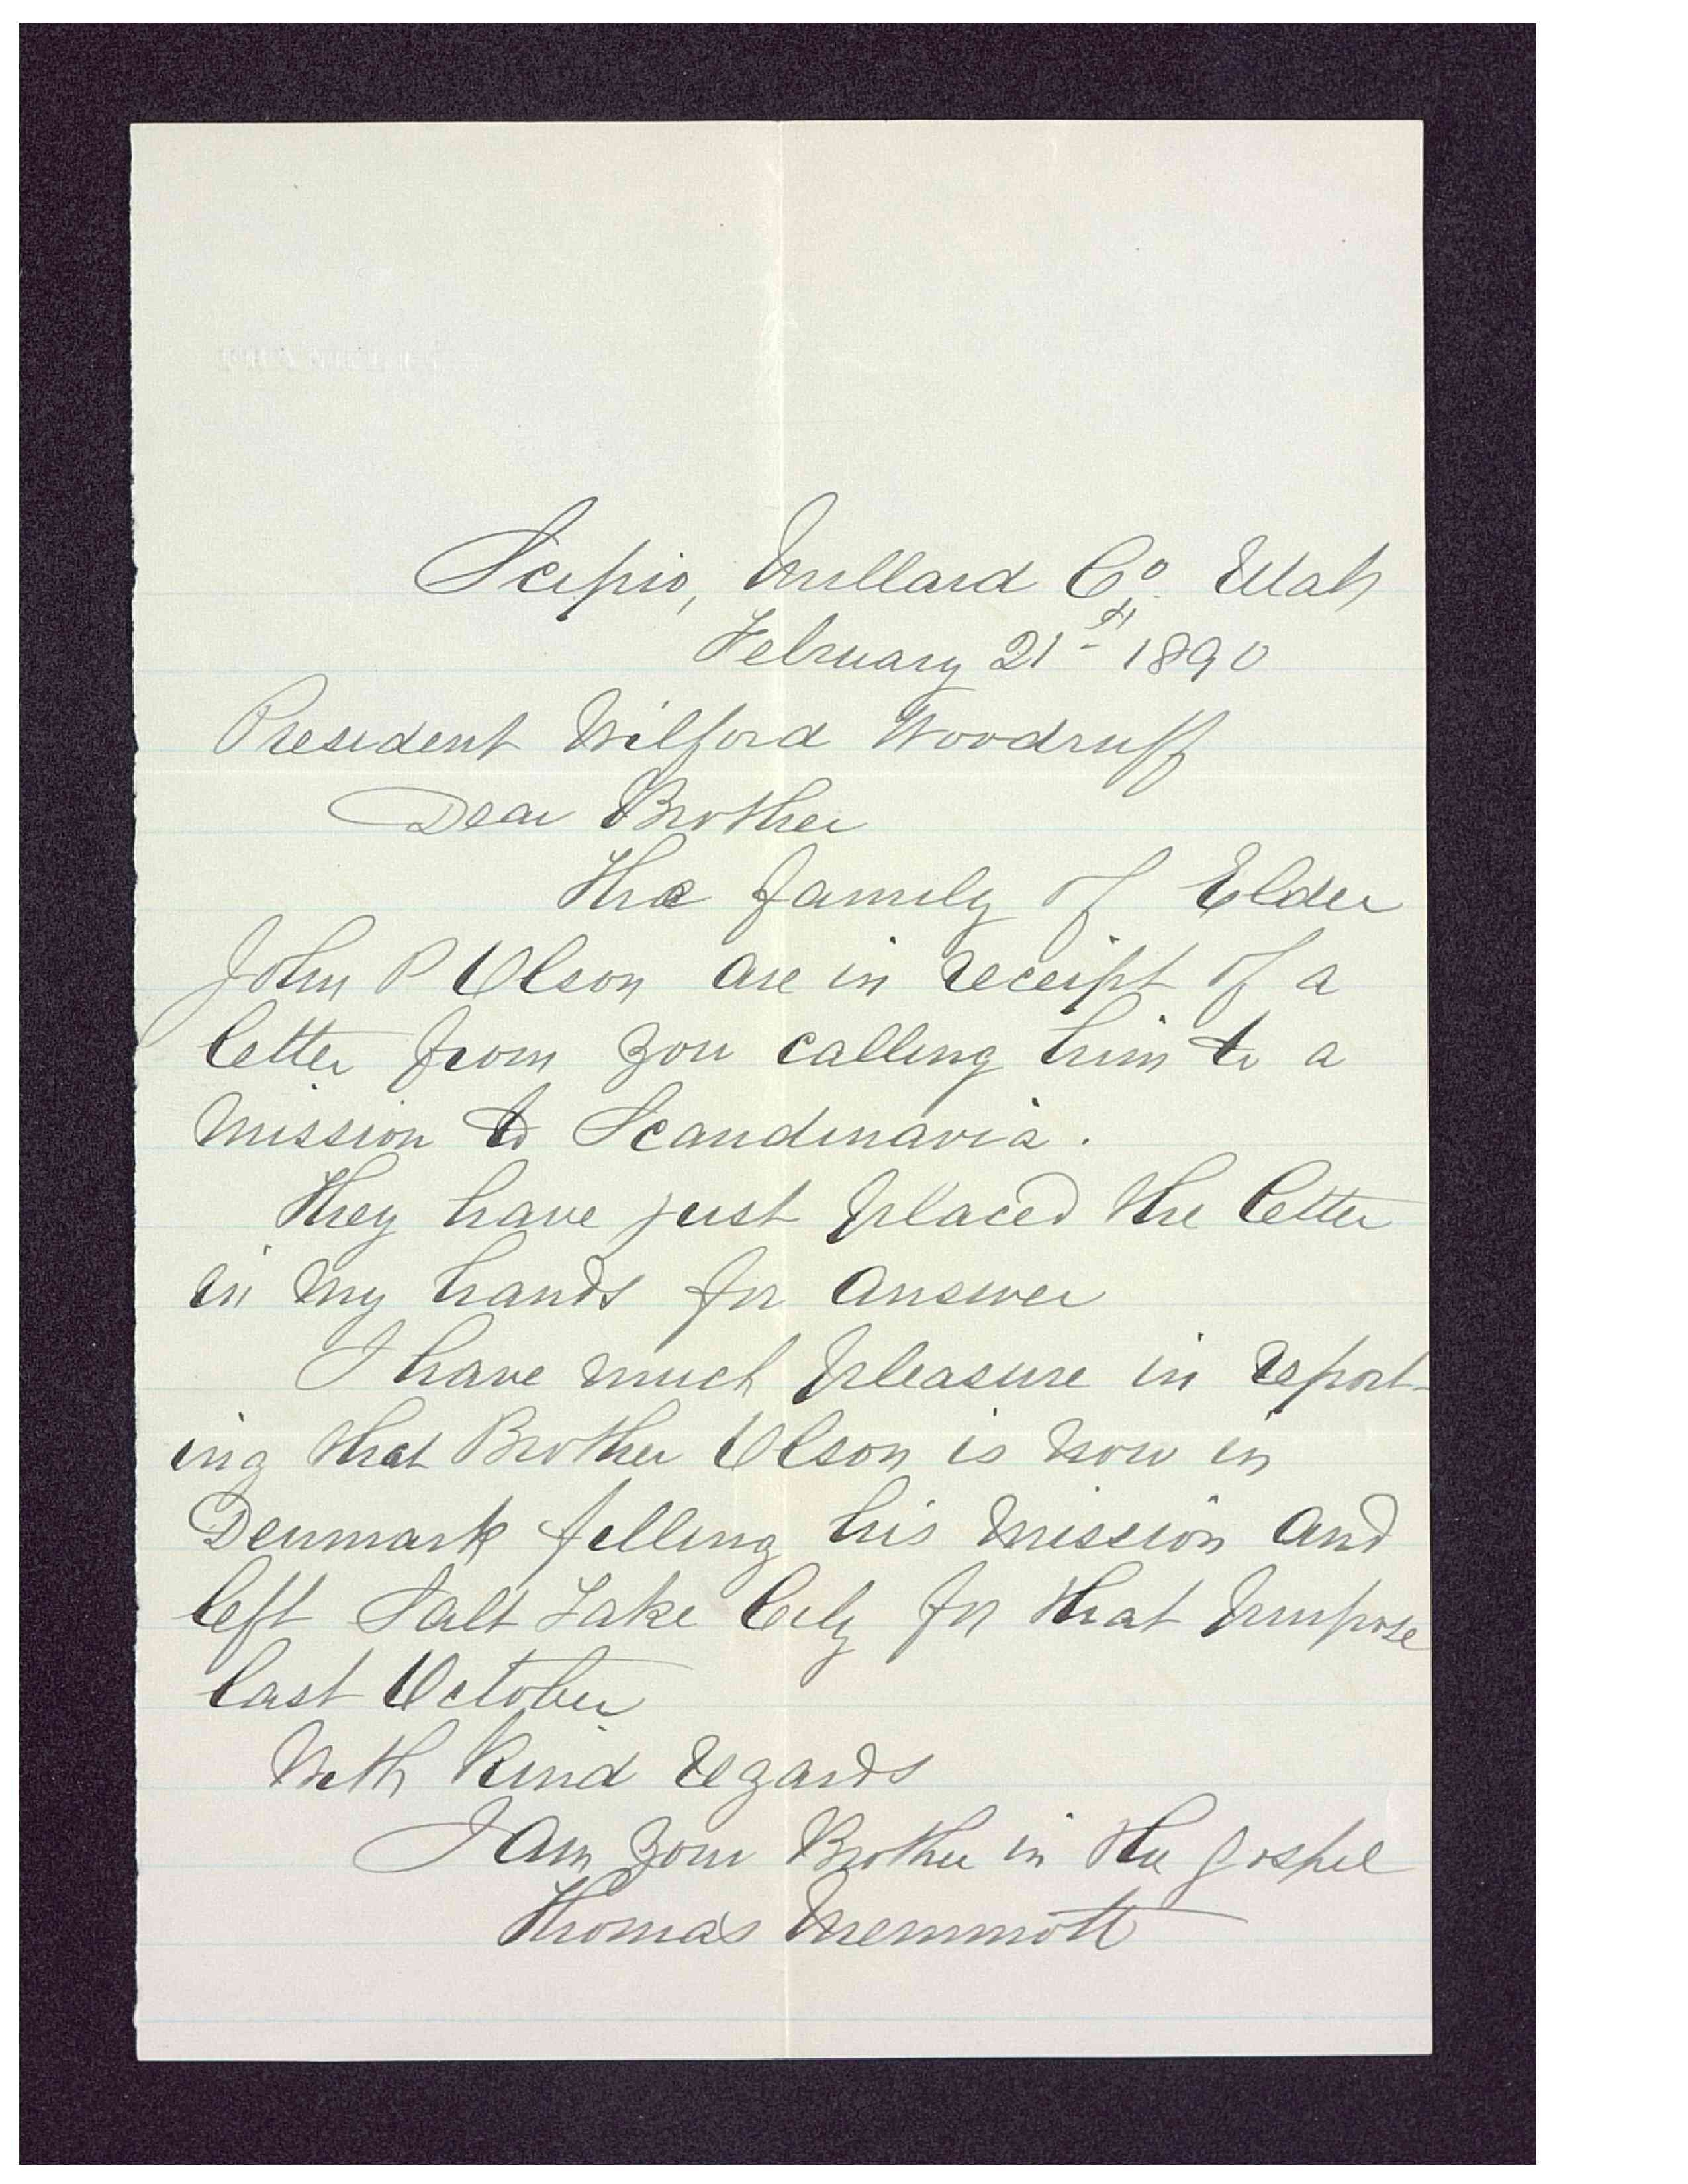 Scipio, Millard Co. Utah
February 21st 1890
President Wilford Woodruff
Dear Brother
The family of Elder
John P Olson are in receipt of a
letter from you calling him to a
mission to Scandinavia.
They have just placed the letter
in my hands for answer
I have much pleasure in report-
ing that Brother Olson is now in
Denmark filling his mission and
left Salt Lake City for that purpose
last October
With kind regards
I am your Brother in the gospel
Thomas Memmott